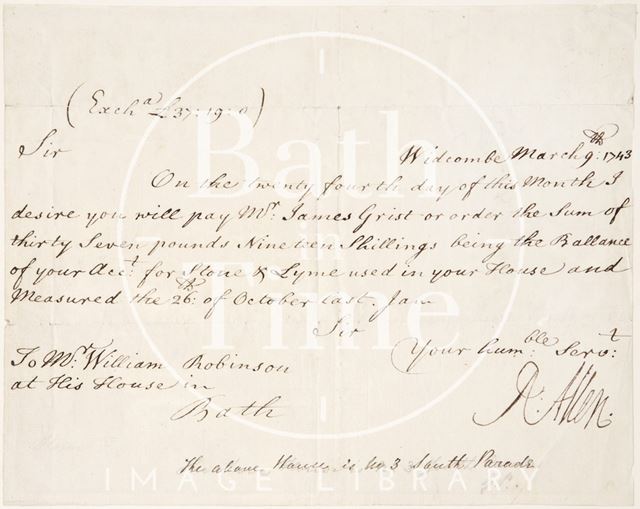 (Exch.ª £37:19:0)
Sir
Widcombe March 9:th 1743
On the twenty fourth day of this Month I
desire you will pay Mr: James Grist or order the Sum of
thirty Seven pounds Nineteen Shillings being the Ballance
of your Acc:t for Stone & Lyme used in your House and
Measured the 26:th of October last. Jam
Sir
Your hum:ble Serv:t
R: Allen.
To Mr: William Robinson
at His House in
Bath
The above House is No 3 South Parade
Bath
in
Time
IMAGE LIBRARY